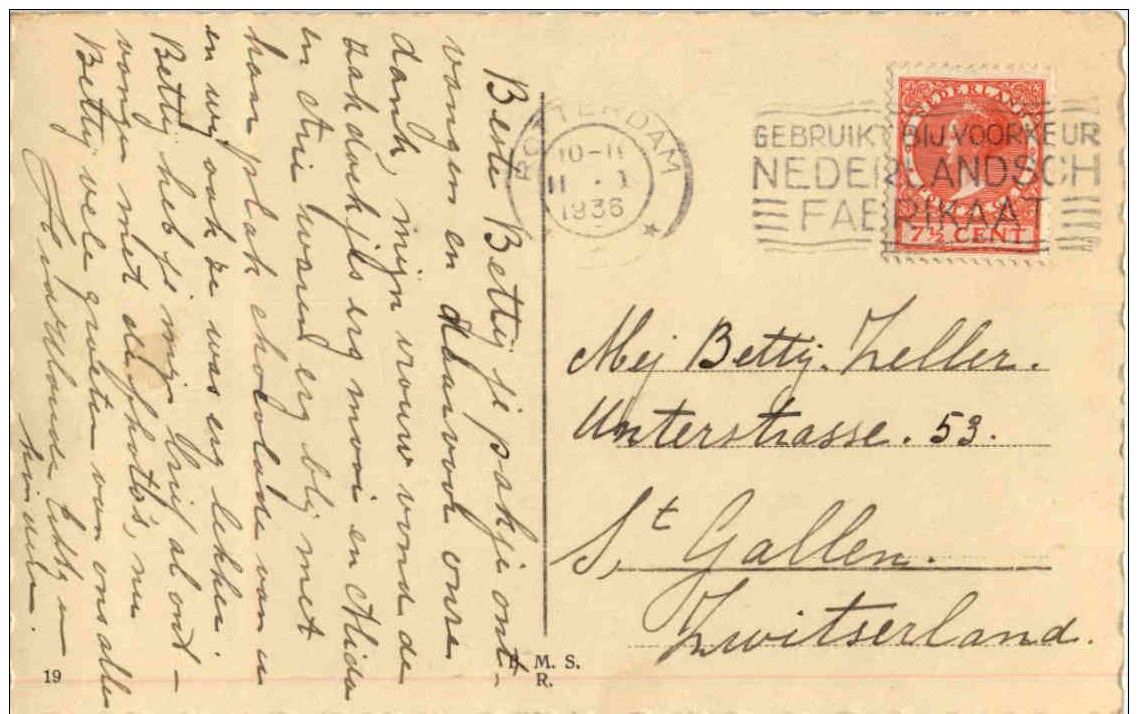 Beste Bettij je pakje ont-
vangen en daarvoor onze
dank, mijn vrouw vond de
zakdoekjes erg mooi en Alida
en Arie waren erg blij met
hon plak chocolade van u
en wij ook ze was erg lekker.
Bettij heb je mijn brief al ont-
vangen met de photo's, nu
Bettij vele groeten van ons allen
ROTTERDAM
10-11
11 . I
1936
GEBRUIKT BIJ VOORKEUR
NEDERLANDSCH
FABRIKAAT
NEDERLAND
7½ CENT
Mej Bettij. Zeller.
Unterstrasse. 53.
St Gallen.
Zwitserland.
19
M. S.
R.